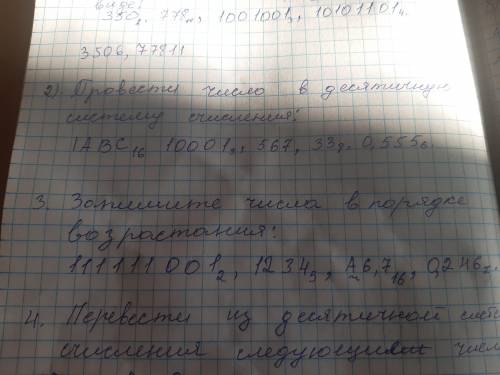 виде:
350₈, 778₁₁, 1001001₂, 10101101₄.
3506, 77811
2) Провести число в десятичную
систему счисления:
1ABC₁₆ 10001₂, 567, 33₈. 0,555₆
3. Запишите числа в порядке
возрастания:
111111001₂, 1234₅, A6,7₁₆, 0,246₇.
4. Перевести из десятичной
счисления следующие